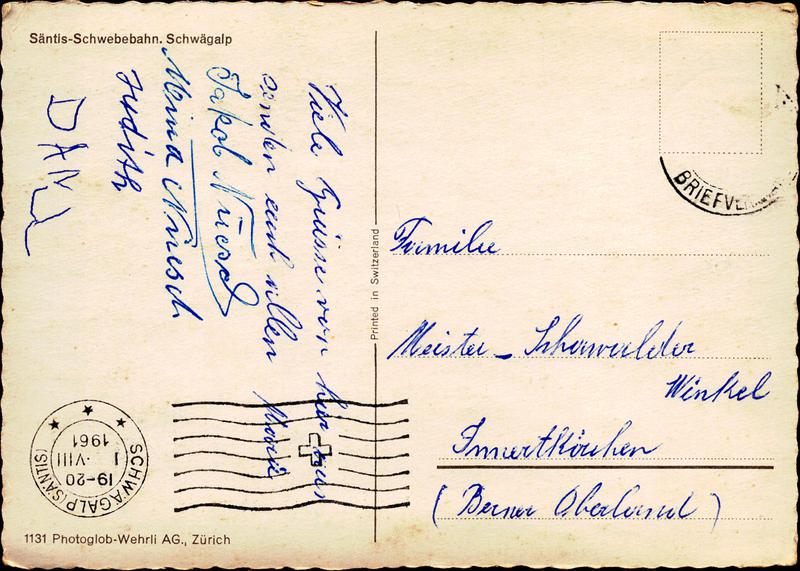 Säntis-Schwebebahn. Schwägalp
Viele Grüsse von hier aus
senden euch allen Maria
Jakob Nüesch
Mina Nüesch
Judith
DANI
Printed in Switzerland
BRIEFVE
Familie
Meister - Scherwalder
Winkel
Innertkirchen
(Berner Oberland)
SCHWÄGALP (SÄNTIS)
19-20
1 · VIII
1961
1131 Photoglob-Wehrli AG., Zürich